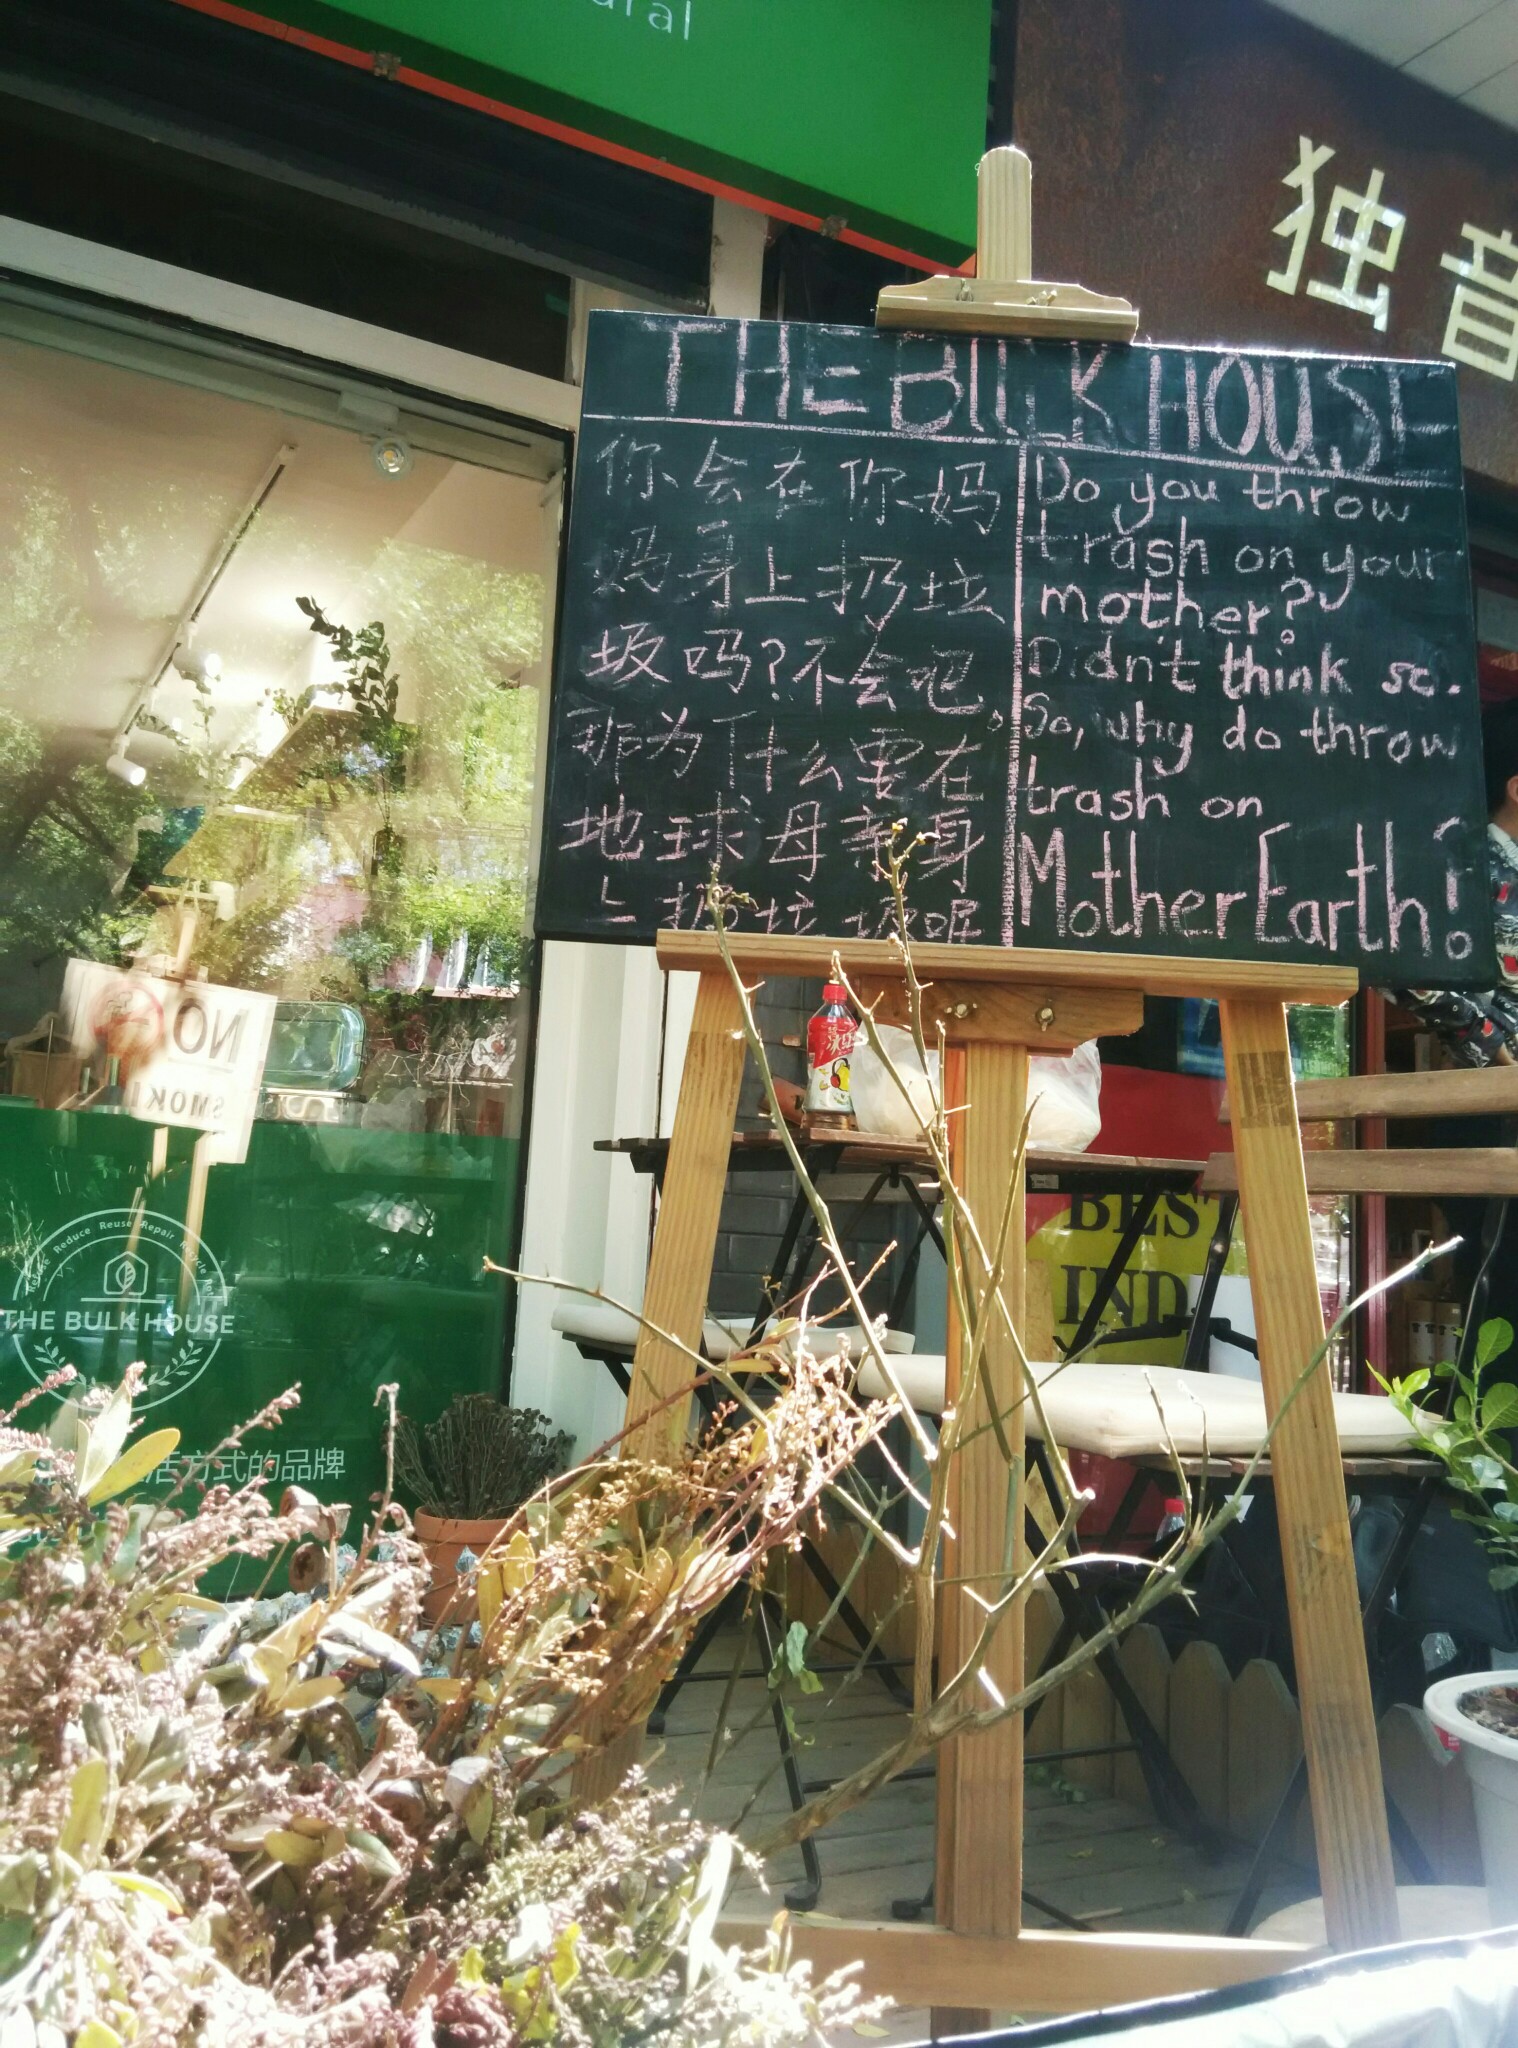 ural
独音
THE BULK HOUSE
你会在你妈
妈身上扔垃
圾吗?不会吧。
那为什么要在
地球母亲身
上扔垃圾呢
Do you throw
trash on your
mother?
Didn't think so.
So, why do throw
trash on
Mother Earth?
NO
SMOKI
Refuse Reduce Reuse Repair
THE BULK HOUSE
活方式的品牌
BEST
IND